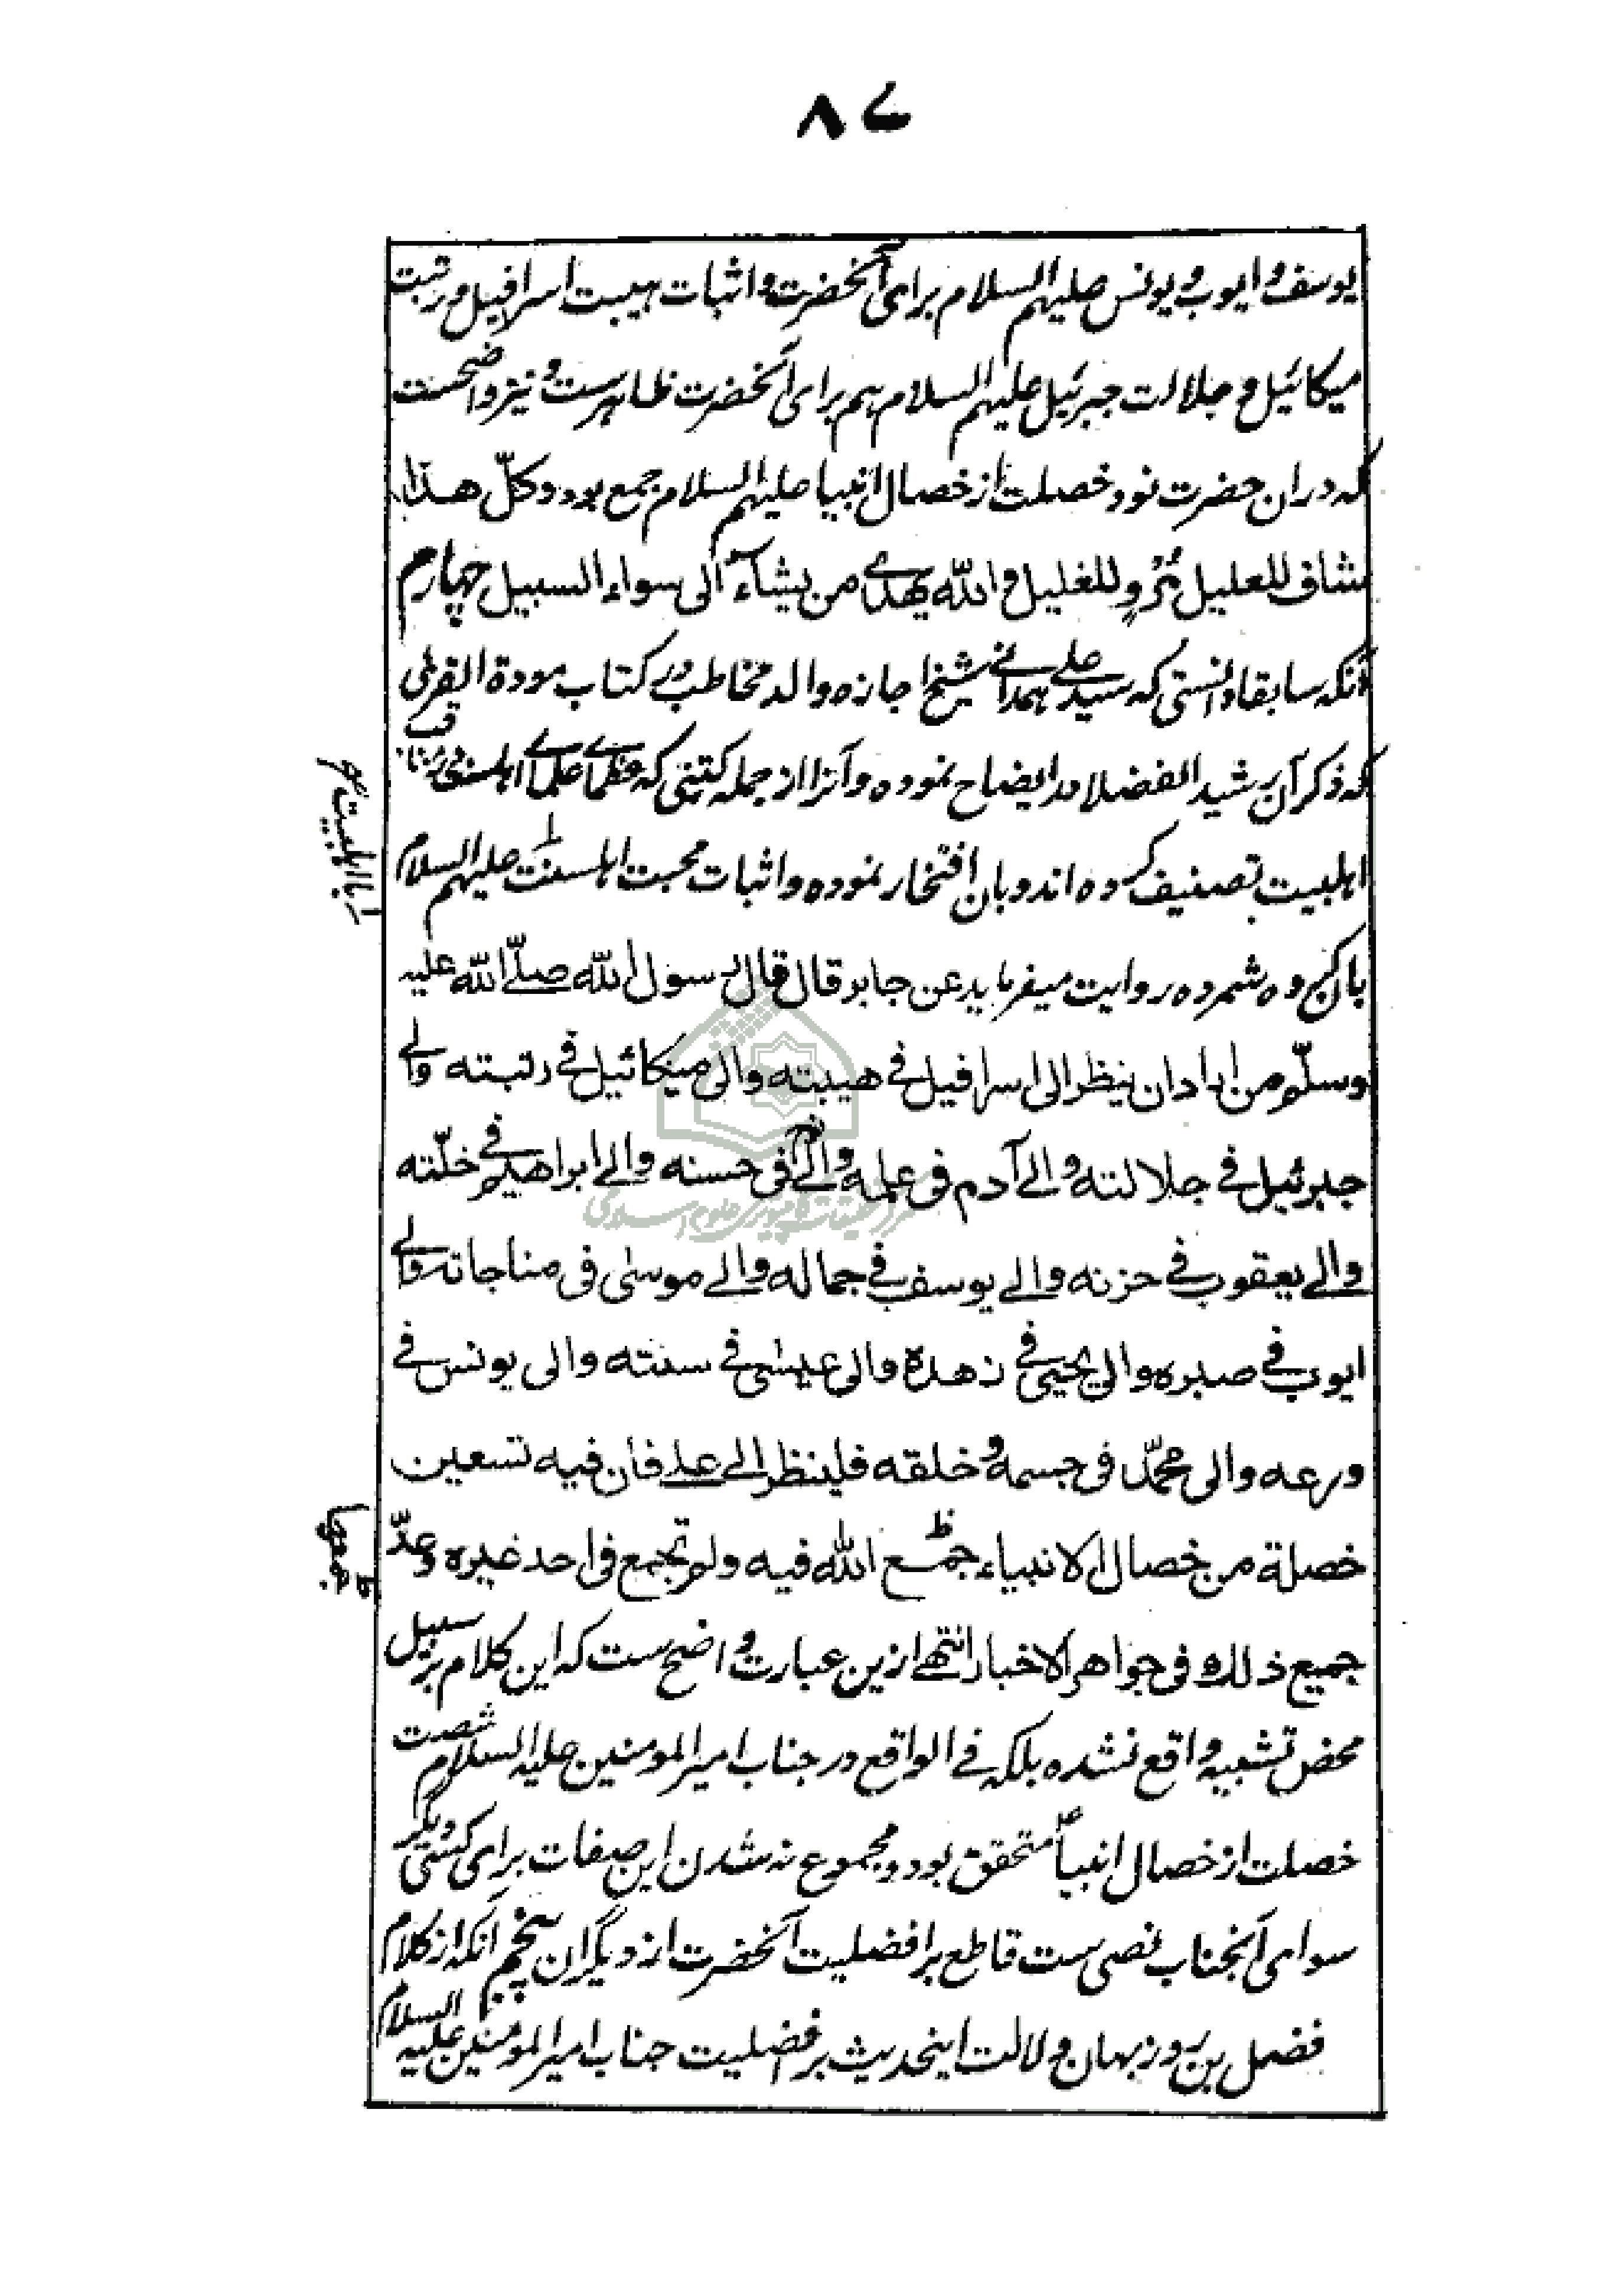 ۸۷
یوسف و ایوب و یونس علیهم السلام برای آنحضرت و اثبات هیبت اسرافیل و رتبت
میکائیل و جلالت جبرئیل علیهم السلام هم برای آنحضرت ظاهرست و نیز واضحست
که دران حضرت نود خصلت از خصال انبیا علیهم السلام جمع بود و کلّ هذا
شاف للعلیل مُرْوٍ للغلیل و الله یهدے من یشآء الی سواء السبیل چهارم
آنکه سابقا دانستی که سید علے همدانے شیخ اجازه والد مخاطب در کتاب مودة القربی
که ذکر آن رشید الفضلا در ایضاح نموده و آنرا از جمله کتبی که عظماے علماے اهلسنت در مناقب
اهلبیت تصنیف کرده اند و بان افتخار نموده و اثبات محبت اهلسنت علیهم السلام
با اهلبیت
بان کرده شمرده روایت میفرماید عن جابر قال قال رسول الله صلّے الله علیه
وسلّم من اراد ان ینظر الی اسرافیل فے هیبته والی میکائیل فے رتبته والے
جبرئیل فے جلالته والے آدم فی علمه والے نوح فی حسنه والے ابراهیم فے خلّته
والے یعقوب فے حزنه والے یوسف فے جماله والے موسی فی مناجاته والے
ایوب فے صبره والی یحیی فے زهده والی عیسی فے سنته والی یونس فے
ورعه والی محمّد فی جسمه و خلقه فلینظر الے علے فان فیه تسعین
خصلة من خصال الانبیاء جمع الله فیه ولم تجمع فی احد غیره وعدّ
جمعها
جمیع ذلك فی جواهر الاخبار انتهے ازین عبارت واضح ست که این کلام بر سبیل
محض تشبیه واقع نشده بلکه فے الواقع در جناب امیر المومنین علیه السلام شصت
خصلت از خصال انبیا ع متحقق بود و مجموع نه شدن این صفات برای کسی دیگر
سوای آنجناب نصی ست قاطع بر افضلیت آنحضرت از دیگران پنجم آنکه از کلام
فضل بن روزبهان دلالت اینحدیث بر افضلیت جناب امیر المومنین علیه السلام
مرکز تحقیقات کامپیوتری علوم اسلامی